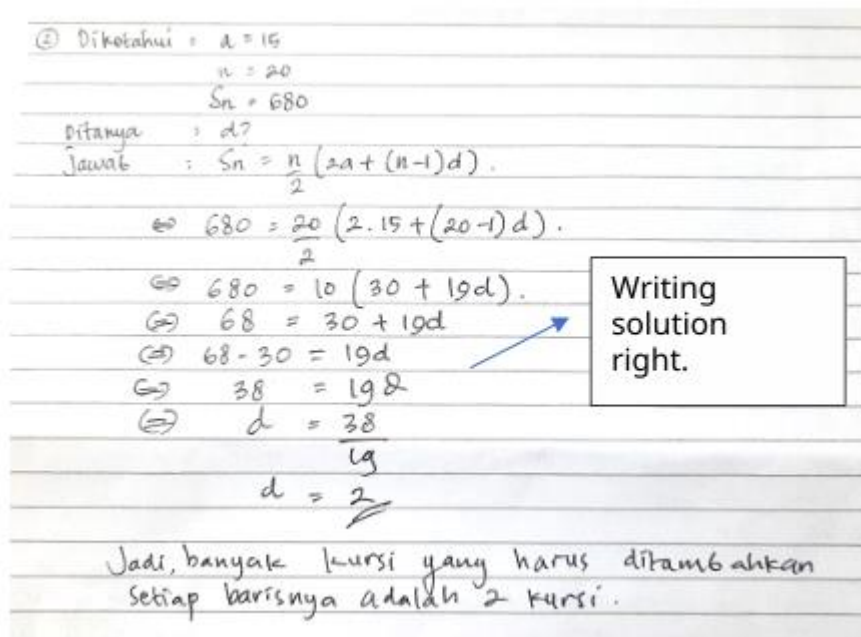 ② Diketahui : a = 15
n = 20
Sn = 680
Ditanya : d?
Jawab : Sn = n/2 (2a + (n-1)d).
⇔ 680 = 20/2 (2.15 + (20-1)d).
⇔ 680 = 10 (30 + 19d).
⇔ 68 = 30 + 19d
⇔ 68 - 30 = 19d
⇔ 38 = 19d
⇔ d = 38/19
d = 2
Jadi, banyak kursi yang harus ditambahkan
setiap barisnya adalah 2 kursi.
Writing
solution
right.